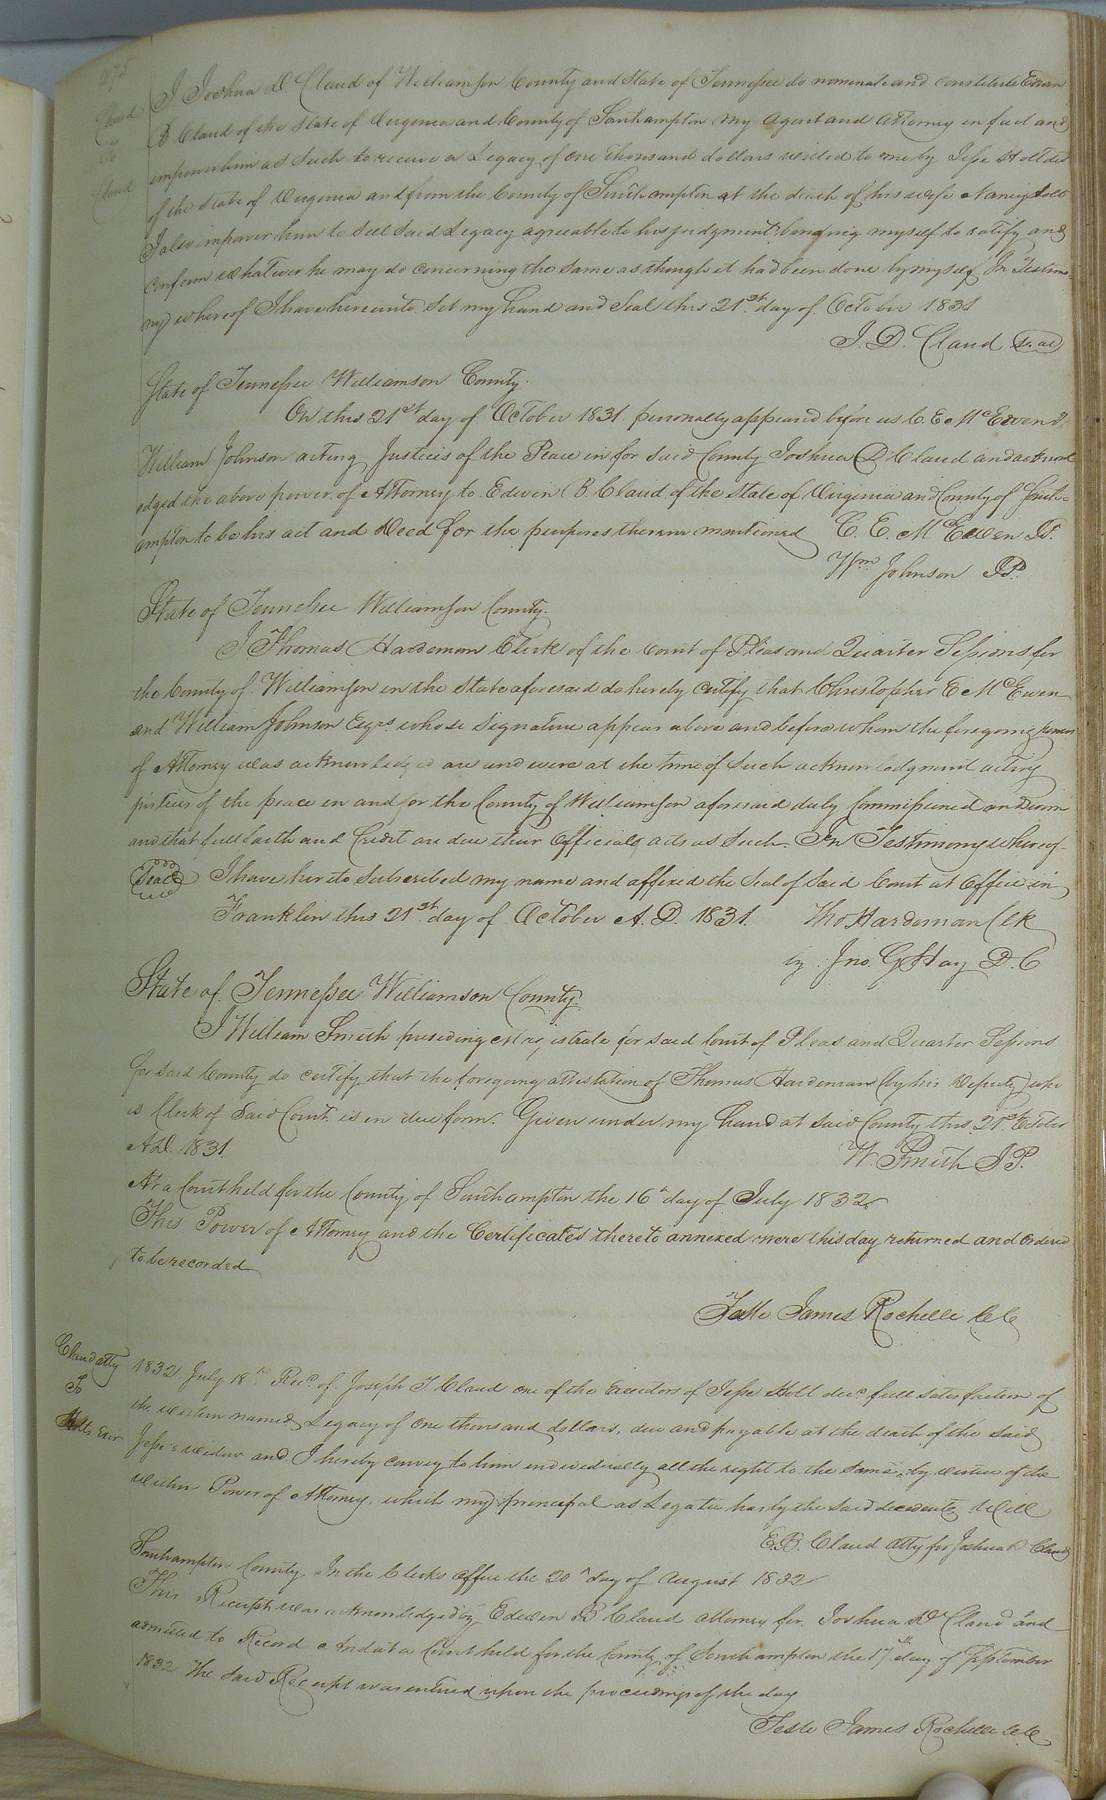 Claud
To
Claud
I Joshua D Claud of Williamson County and State of Tennessee do nominate and constitute Edwin
B Claud of the State of Virginia and County of Southampton my Agent and Attorney in fact and
empower him as such to receive a Legacy of one thousand dollars willed to me by Jesse Holt decd
of the State of Virginia and from the County of Southampton at the death of his wife Nancy Holt
I also impower him to sell said Legacy agreeable to his judgment, binding myself to ratify and
confirm whatever he may do concerning the same as though it had been done by myself. In Testimo
ny whereof I have hereunto set my hand and Seal this 21st day of October 1831
J. D. Claud Seal
State of Tennessee Williamson County.
On this 21st day of October 1831 personally appeared before us C. E. McEwen &
William Johnson acting Justices of the Peace in for said County Joshua D Claud and acknowl
edged the above power of Attorney to Edwin B Claud of the State of Virginia and County of South=
ampton to be his act and Deed for the purposes therein mentioned C. E. McEwen JP.
Wm Johnson JP.
State of Tennessee Williamson County.
I Thomas Hardeman Clerk of the Court of Pleas and Quarter Sessions for
the County of Williamson in the State aforesaid do hereby certify that Christopher E McEwen
and William Johnson Esqrs whose signature appear above and before whom the foregoing power
of Attorney was acknowledged are and were at the time of such acknowledgment acting
justices of the peace in and for the County of Williamson aforesaid duly Commissioned and sworn
and that full faith and Credit are due their Official acts as such. In Testimony whereof
Seal I have hereto subscribed my name and affixed the seal of said Court at Office in
Franklin this 21st day of October A. D. 1831. Tho Hardeman Clk
by Jno. G Hay D. C
State of Tennessee Williamson County.
I William Smith presiding Magistrate for said Court of Pleas and Quarter Sessions
for said County do certify that the foregoing attestation of Thomas Hardeman (by his Deputy) who
is Clerk of said Court is in due form. Given under my hand at said County this 21st October
AD. 1831. W. Smith JP.
At a Court held for the County of Southampton the 16th day of July 1832
This Power of Attorney and the Certificates thereto annexed were this day returned and Ordered
to be recorded
Teste James Rochelle CC
Claud atty
To
Holts Exor
1832 July 18th Recd of Joseph T. Claud one of the Executors of Jesse Holt decd full satisfaction of
the within named Legacy of one thousand dollars, due and payable at the death of the said
Jesse's widow and I hereby convey to him individually all the right to the same, by virtue of the
within Power of Attorney, which my principal as Legatee has by the said decedents Will
E. B. Claud Atty for Joshua D Claud
Southampton County. In the Clerks office the 20th day of August 1832
This Receipt was acknowledged by Edwin B Claud attorney for Joshua D Claud and
admitted to Record And at a Court held for the County of Southampton the 17th day of September
1832 The said Receipt was entered upon the proceedings of the day
Teste James Rochelle CC